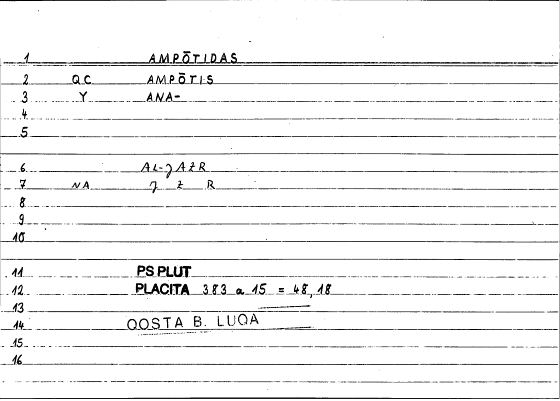 1 AMPŌTIDAS
2 QC AMPŌTIS
3 Y ANA-
4
5
6 AL-ȷAZR
7 NA ȷ Z R
8
9
10
11 PS PLUT
12 PLACITA 383 a 15 = 48,18
13
14 QOSTA B. LUQA
15
16